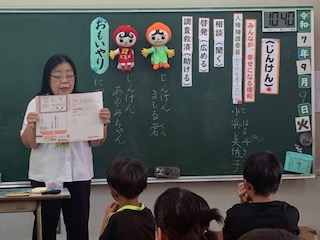 10:40
令和
7年
9月
9日
火
おもいやり
に
じんけん
まもる君
じんけん
あゆみちゃん
調査救済(助ける)
啓発(広める)
相談(聞く)
人権擁護委員
みんなが、幸せになる権利
(じんけん)